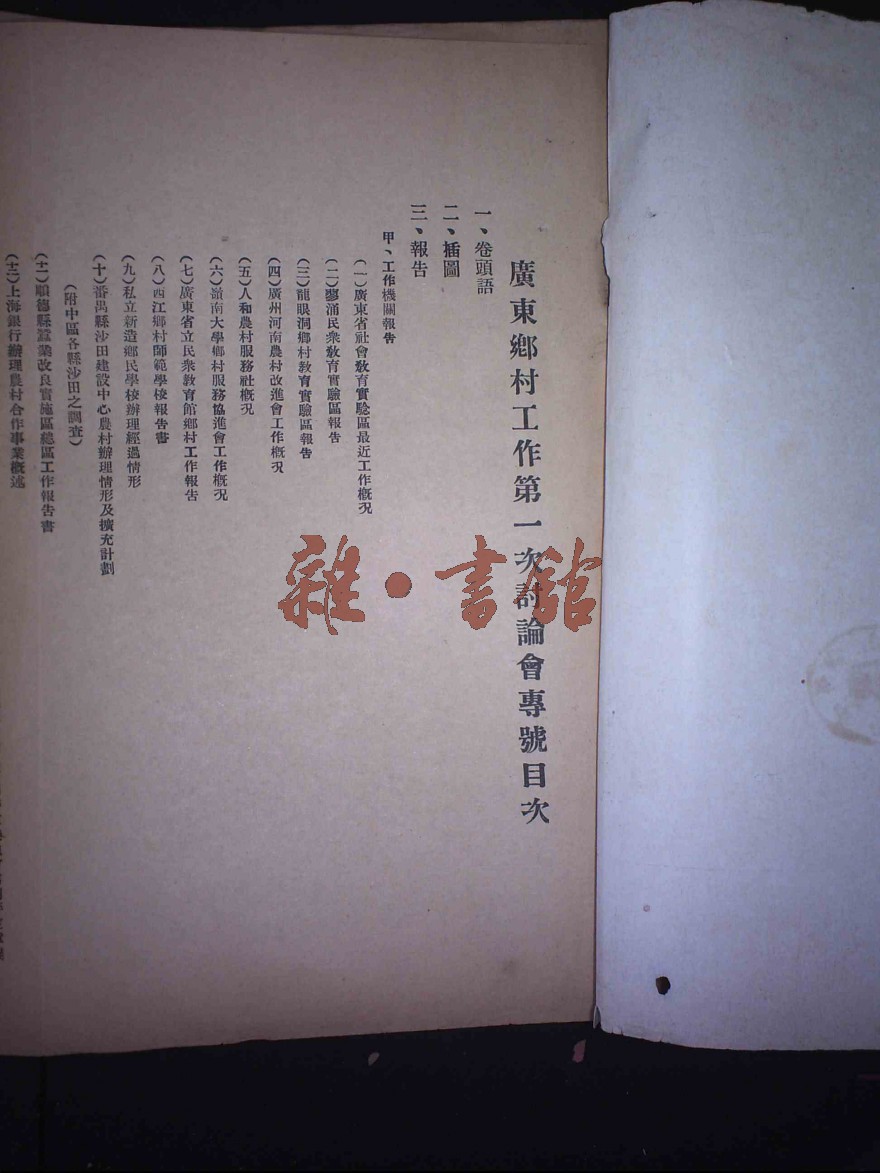 廣東鄉村工作第一次討論會專號目次
一、卷頭語
二、插圖
三、報告
甲、工作機關報告
(一)廣東省社會敎育實騐區最近工作概况
(二)蓼涌民衆敎育實騐區報告
(三)龍眼洞鄉村敎育實騐區報告
(四)廣州河南農村改進會工作概况
(五)人和農村服務社概况
(六)嶺南大學鄉村服務協進會工作概况
(七)廣東省立民衆敎育館鄉村工作報告
(八)西江鄉村師範學校報告書
(九)私立新造鄉民學校辦理經過情形
(十)番禺縣沙田建設中心農村辦理情形及擴充計劃
(附中區各縣沙田之調査)
(十一)順德縣蠶業改良實施區總區工作報告書
(十二)上海銀行辦理農村合作事業概述
雜·書館